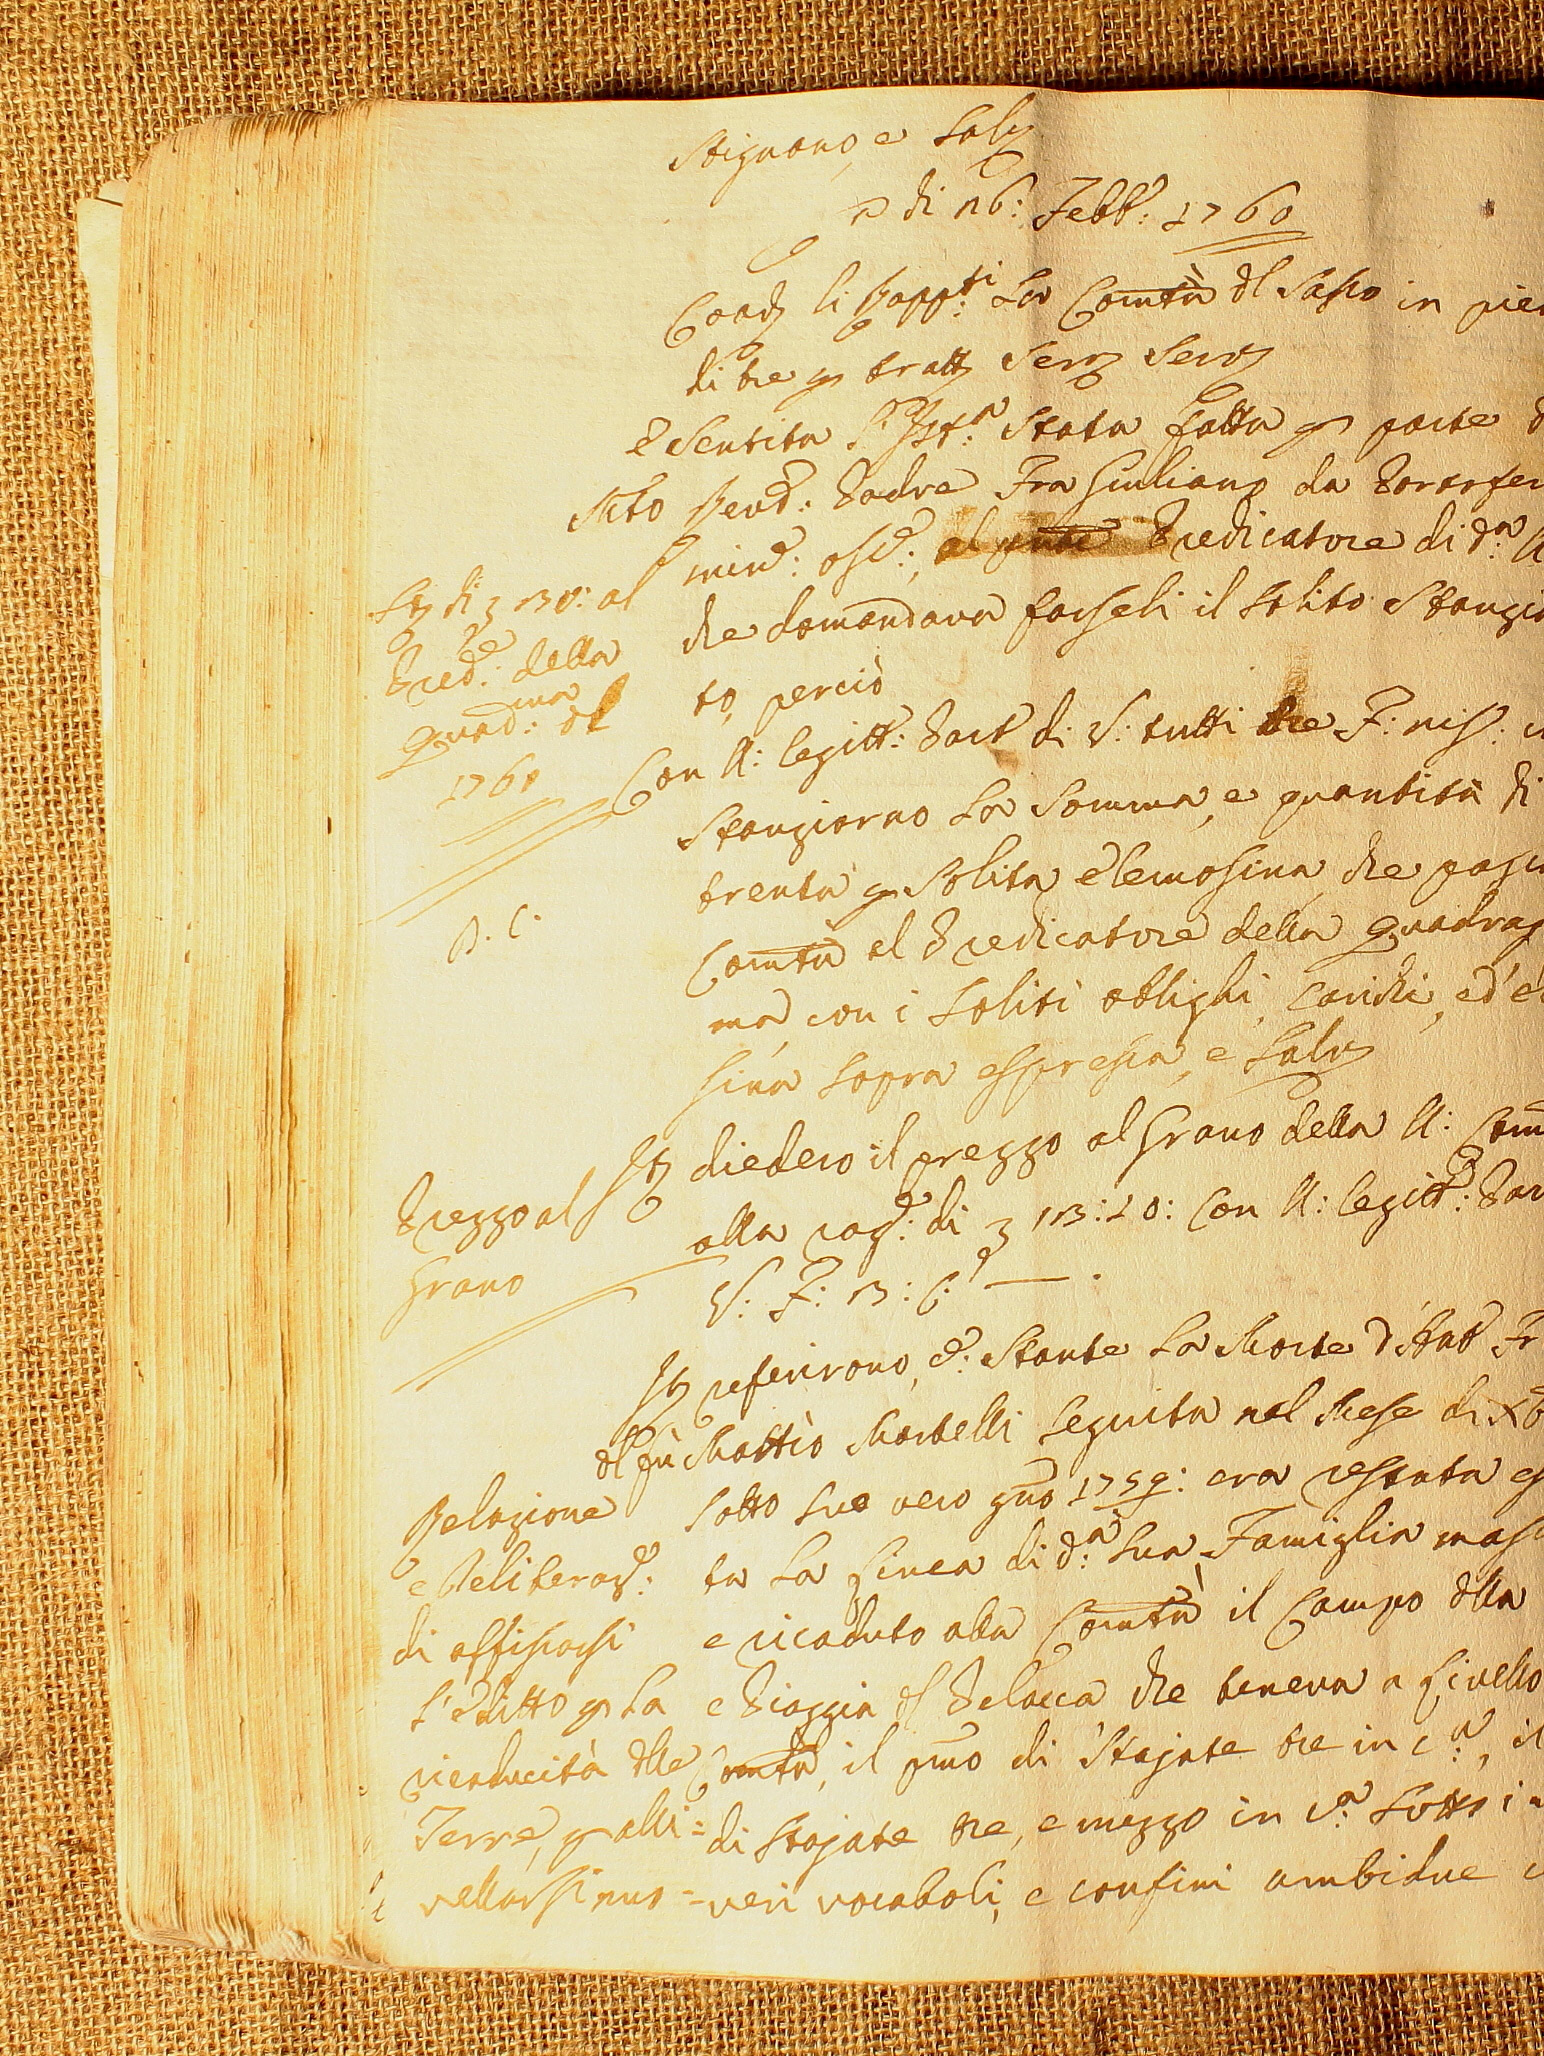 Stignano, e Salv
a di 16: Febb: 1760
Coad li Rappti La Comtà dl Sasso in pien
di tre p tratt Serv Serv
E Sentita l'Istza Stata fatta p parte d
Mto Rend: Padre Fra Giuliano da
min: oss: al Predicatore di da
che domandava farseli il Solito Stanzia
to, perciò
Con U: legitt: Part di V: tutti tre F: nis:
Stanziorno La Somma, e quantità di
trenta p Solita Elemosina, che
Comtà al Predicatore della Quadrag
ma con i Soliti obblighi, carichi, ed e
sina Sopra espressa, e Salv
St di 30: al
Pred: della
Quadma: dl
1760
Itt diedero il prezzo al Grano della U: Com
alla rag: di 13:10: Con U: legitt: Par
V: F: 3: C:
Prezzo al
Grano
Itt referirono, e: Stante La Morte d'Ant Fr
dl fù Mattio Martelli Seguita nel Mese di Xb
Sotto Suo vero gno 1759: era restata es
ta La Linea di da Sua Famiglia mas
e ricaduto alla Comtà il Campo dlla
e Piaggia dl Pelacca che teneva a Livello
Comtà, il pmo di Stajate tre in ca, il
di Stajate tre, e mezzo in ca Sotto i
veri vocaboli, e confini ambidue
Relazione
e Deliberaz:
di affissarsi
l'Editto p La
ricaducità dlle
Terre, p alli=
vellarsi nuo=